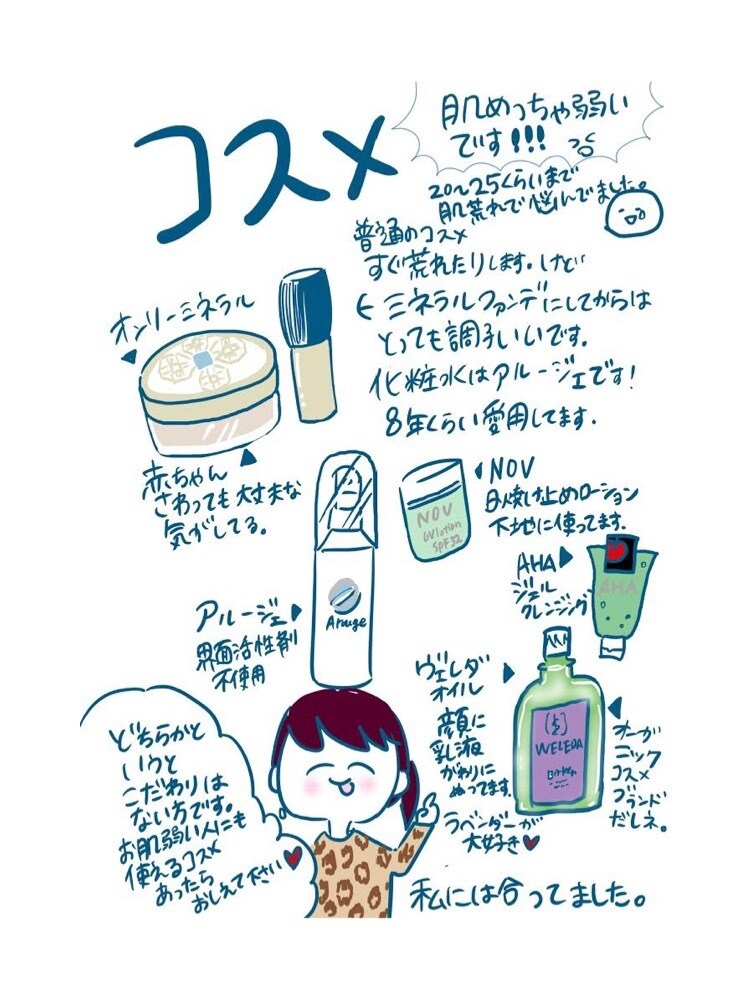 コスメ
肌めっちゃ弱い
です!!!
20〜25くらいまで
肌荒れで悩んでました。
普通のコスメ
すぐ荒れたりします。けど
ミネラルファンデにしてからは
とっても調子いいです。
化粧水はアルージェです!
8年くらい愛用してます.
オンリーミネラル
赤ちゃん
さわっても大丈夫な
気がしてる。
NOV
日焼け止めローション
下地に使ってます.
NOV
UV lotion
SPF32
AHA
ジェル
クレンジング
AHA
アルージェ
界面活性剤
不使用
Arouge
ヴェレダ
オイル
顔に
乳液
がわりに
ぬってます.
ラベンダーが
大好き
WELEDA
オーガ
ニック
コスメ
ブランド
だしネ。
どちらかと
いうと
こだわりは
ない方です。
お肌弱い人にも
使えるコスメ
あったら
おしえて下さい
私には合ってました。